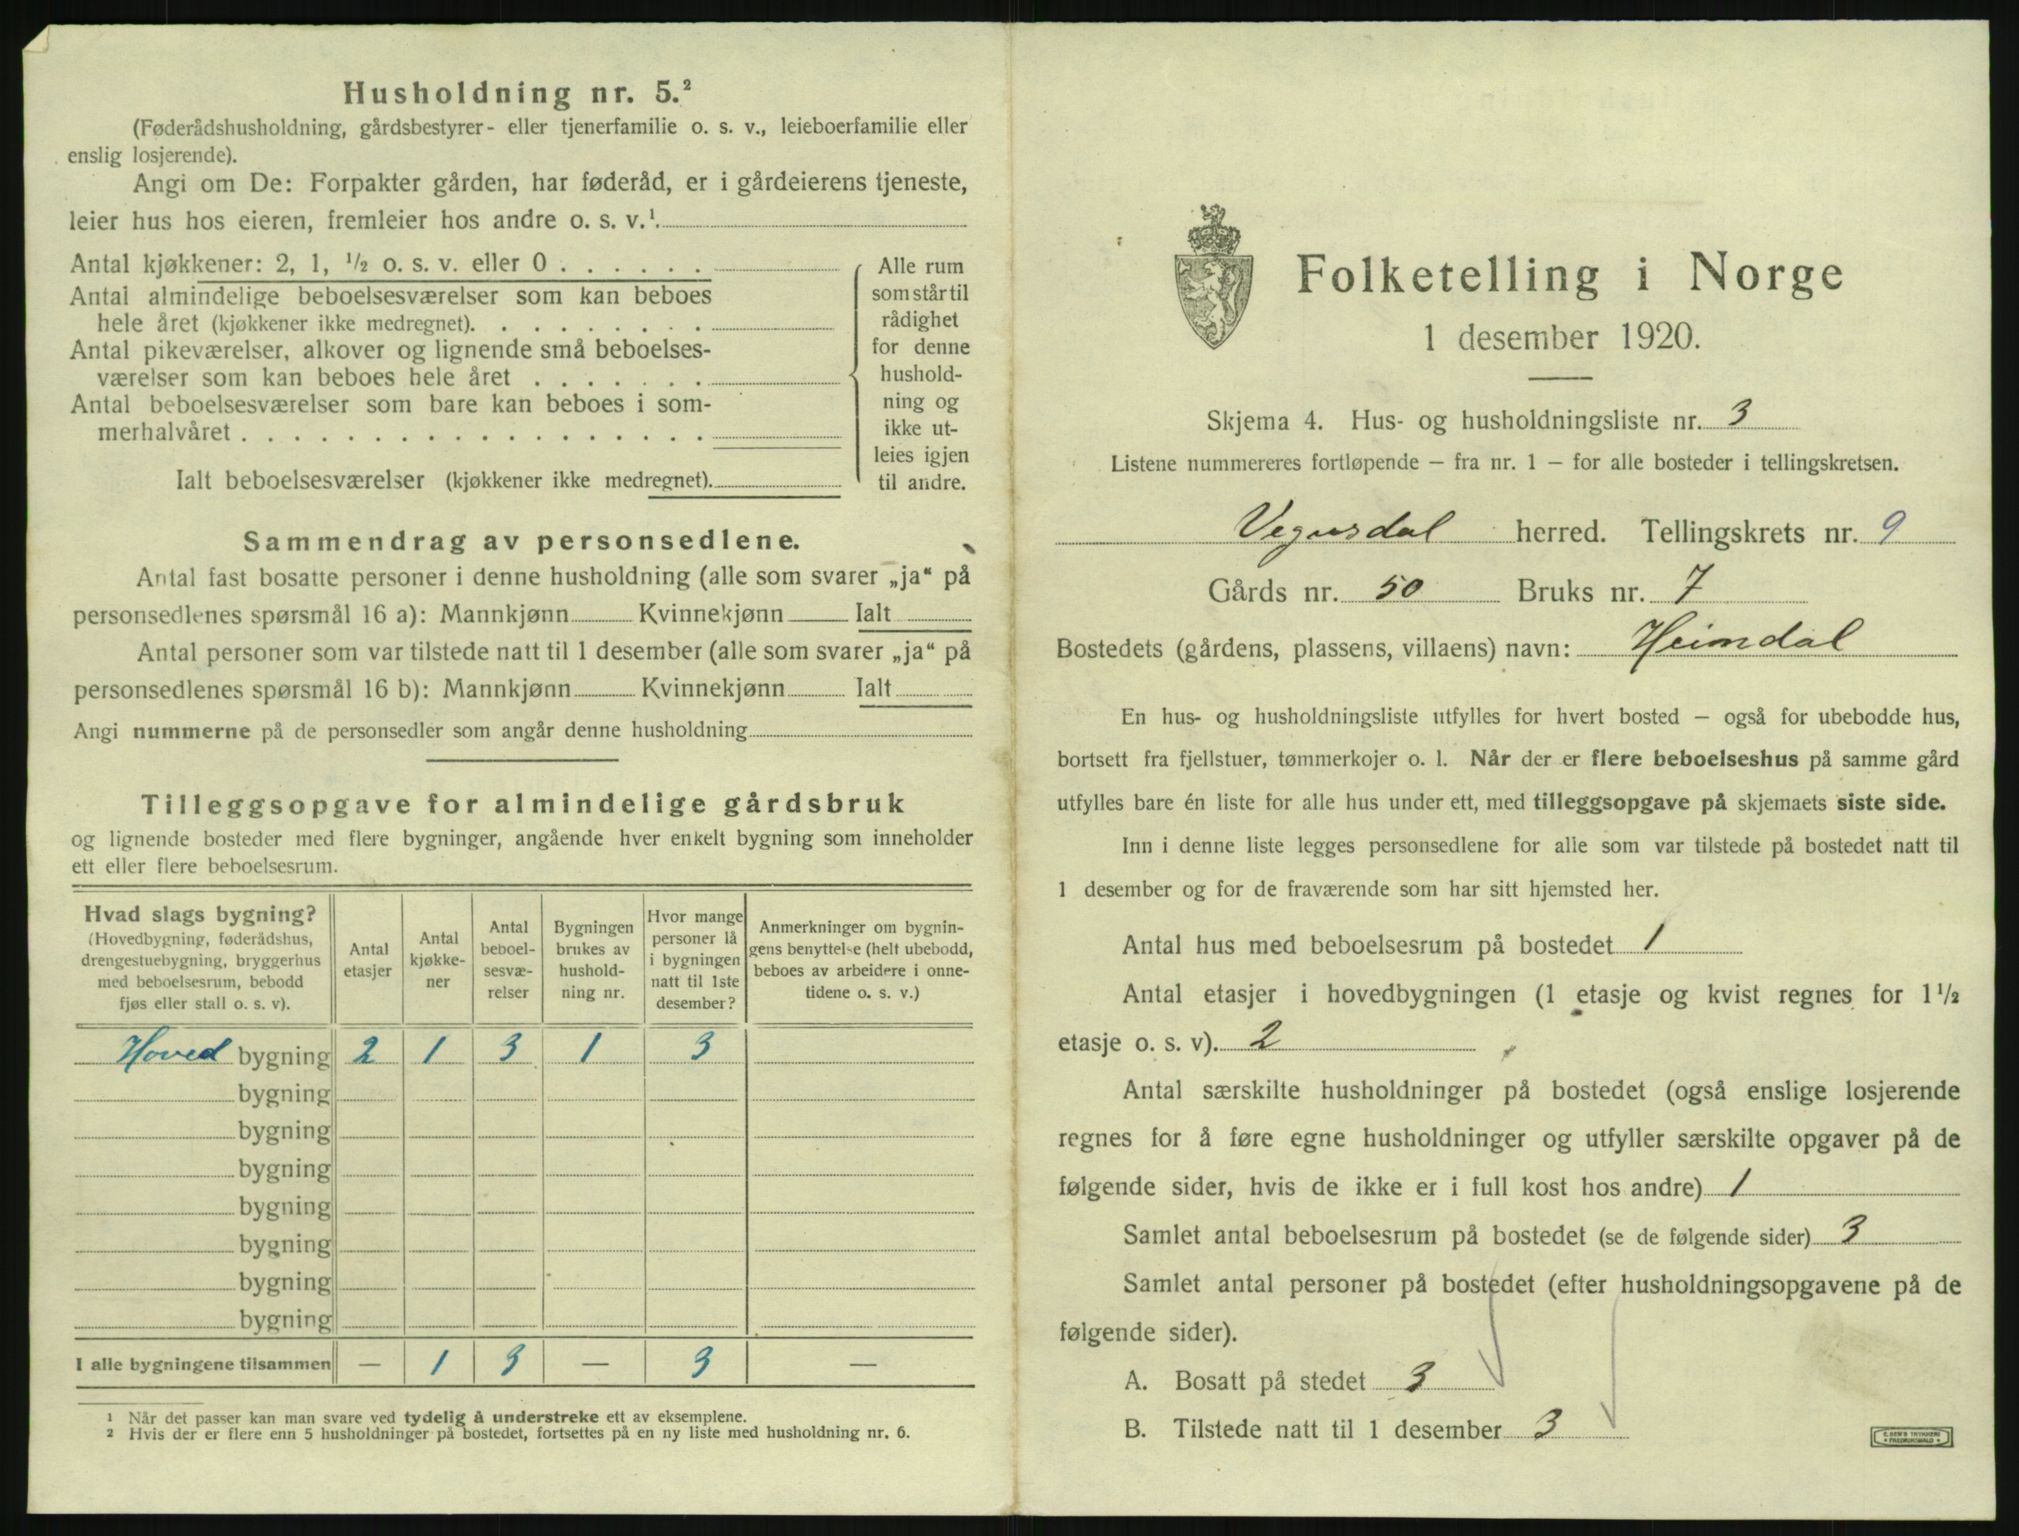 Husholdning nr. 5.²
(Føderådshusholdning, gårdsbestyrer- eller tjenerfamilie o. s. v., leieboerfamilie eller
enslig losjerende).
Angi om De: Forpakter gården, har føderåd, er i gårdeierens tjeneste,
leier hus hos eieren, fremleier hos andre o. s. v.¹
Antal kjøkkener: 2, 1, ½ o. s. v. eller 0 . . . . . .
Antal almindelige beboelsesværelser som kan beboes
hele året (kjøkkener ikke medregnet). . . . . . . . .
Antal pikeværelser, alkover og lignende små beboelses-
værelser som kan beboes hele året . . . . . . .
Antal beboelsesværelser som bare kan beboes i som-
merhalvåret . . . . . . . . . . . . . . . . . .
Ialt beboelsesværelser (kjøkkener ikke medregnet).
Alle rum
som står til
rådighet
for denne
hushold-
ning og
ikke ut-
leies igjen
til andre.
Sammendrag av personsedlene.
Antal fast bosatte personer i denne husholdning (alle som svarer „ja“ på
personsedlenes spørsmål 16 a): Mannkjønn Kvinnekjønn Ialt
Antal personer som var tilstede natt til 1 desember (alle som svarer „ja“ på
personsedlenes spørsmål 16 b): Mannkjønn Kvinnekjønn Ialt
Angi nummerne på de personsedler som angår denne husholdning
Tilleggsopgave for almindelige gårdsbruk
og lignende bosteder med flere bygninger, angående hver enkelt bygning som inneholder
ett eller flere beboelsesrum.
Hvad slags bygning?
(Hovedbygning, føderådshus,
drengestuebygning, bryggerhus
med beboelsesrum, bebodd
fjøs eller stall o. s. v).
Antal
etasjer
Antal
kjøkke-
ner
Antal
beboel-
sesvæ-
relser
Bygningen
brukes av
hushold-
ning nr.
Hvor mange
personer lå
i bygningen
natt til 1ste
desember?
Anmerkninger om bygnin-
gens benyttelse (helt ubebodd,
beboes av arbeidere i onne-
tidene o. s. v.)
Hoved bygning 2 1 3 1 3
bygning
bygning
bygning
bygning
bygning
bygning
bygning
I alle bygningene tilsammen — 1 3 — 3 —
¹ Når det passer kan man svare ved tydelig å understreke ett av eksemplene.
² Hvis der er flere enn 5 husholdninger på bostedet, fortsettes på en ny liste med husholdning nr. 6.
Folketelling i Norge
1 desember 1920.
Skjema 4. Hus- og husholdningsliste nr. 3
Listene nummereres fortløpende – fra nr. 1 – for alle bosteder i tellingskretsen.
Vegusdal herred. Tellingskrets nr. 9
Gårds nr. 50 Bruks nr. 7
Bostedets (gårdens, plassens, villaens) navn: Heimdal
En hus- og husholdningsliste utfylles for hvert bosted – også for ubebodde hus,
bortsett fra fjellstuer, tømmerkojer o. l. Når der er flere beboelseshus på samme gård
utfylles bare én liste for alle hus under ett, med tilleggsopgave på skjemaets siste side.
Inn i denne liste legges personsedlene for alle som var tilstede på bostedet natt til
1 desember og for de fraværende som har sitt hjemsted her.
Antal hus med beboelsesrum på bostedet 1
Antal etasjer i hovedbygningen (1 etasje og kvist regnes for 1½
etasje o. s. v). 2
Antal særskilte husholdninger på bostedet (også enslige losjerende
regnes for å føre egne husholdninger og utfyller særskilte opgaver på de
følgende sider, hvis de ikke er i full kost hos andre) 1
Samlet antal beboelsesrum på bostedet (se de følgende sider) 3
Samlet antal personer på bostedet (efter husholdningsopgavene på de
følgende sider).
A. Bosatt på stedet 3
B. Tilstede natt til 1 desember 3